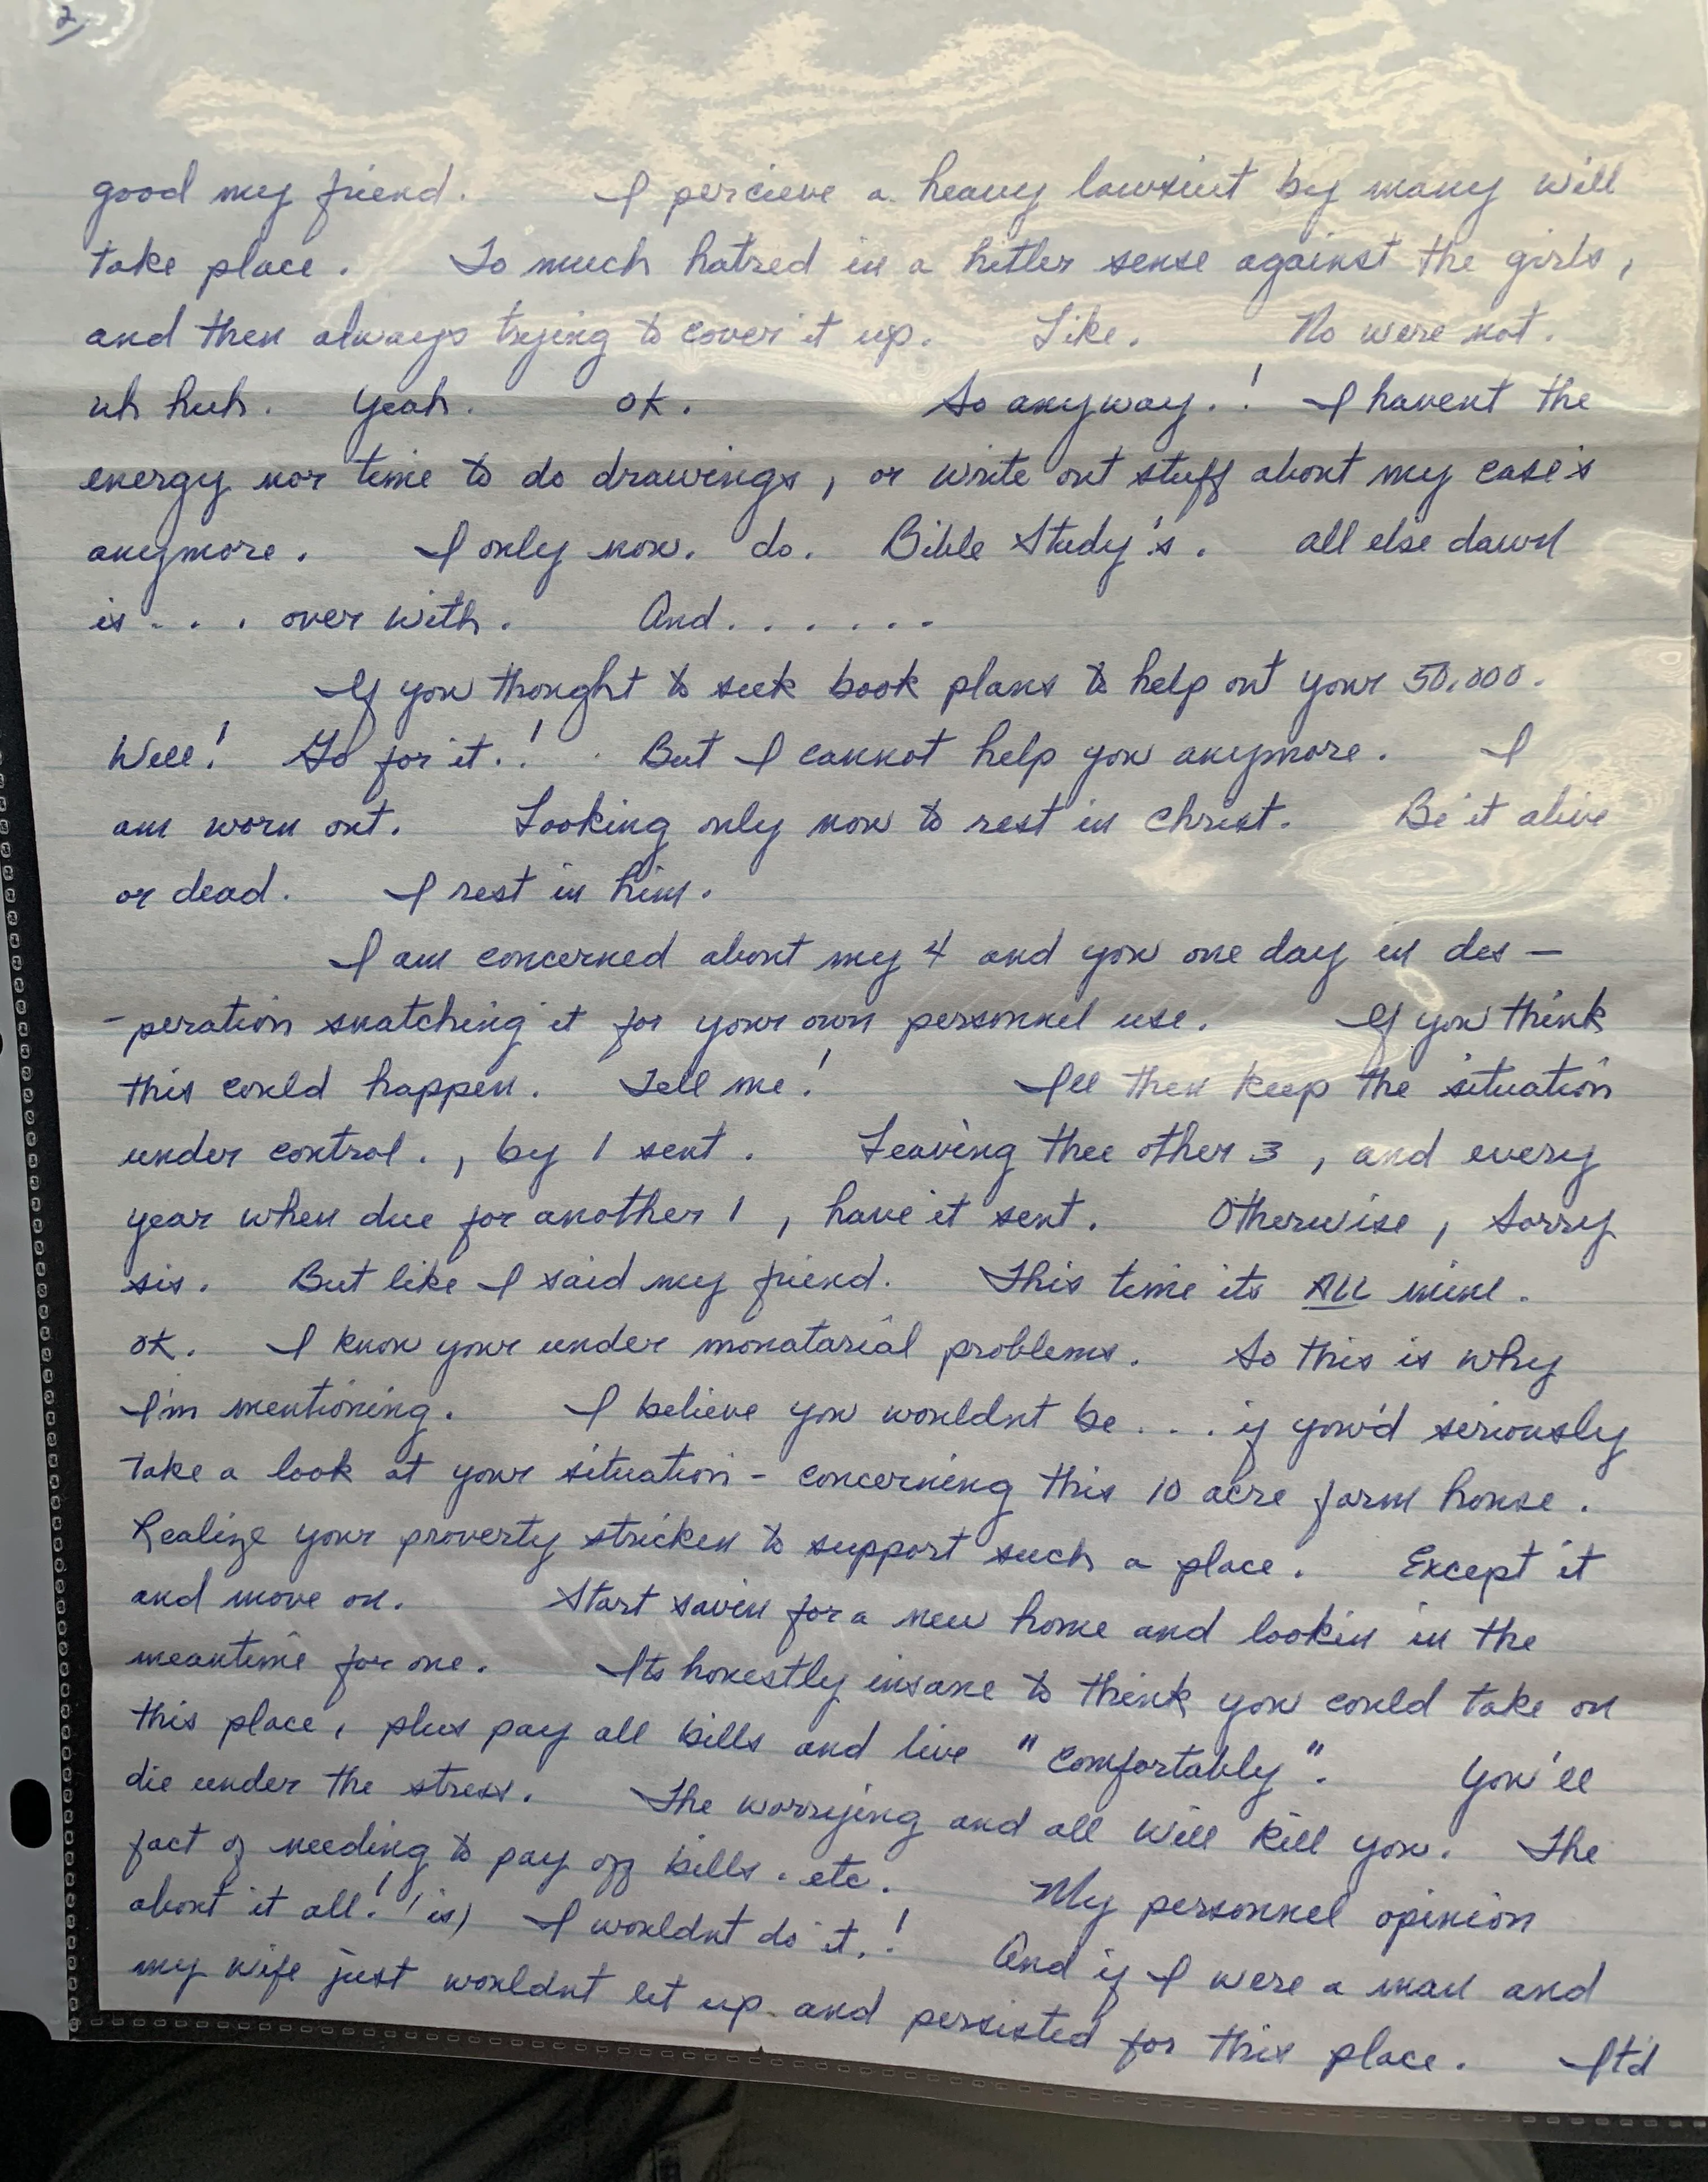 2
good my friend. I percieve a heavy lawsuit by many will
take place. So much hatred in a hitler sense against the girls,
and then always trying to cover it up. Like. No were not.
uh huh. Yeah. OK. So anyway.! I havent the
energy nor time to do drawings, or write out stuff about my case's
anymore. I only now. do. Bible Study's. all else dawn
is . . . over with. And . . . . . .
If you thought to seek book plans to help out your 50,000.
Well! Go for it.! But I cannot help you anymore. I
am worn out. Looking only now to rest in Christ. Be it alive
or dead. I rest in him.
I am concerned about my 4 and you one day in des -
- peration snatching it for your own personnel use. If you think
this could happen. Tell me! Ill then keep the situation
under control . , by 1 sent. Leaving thee other 3 , and every
year when due for another 1 , have it sent. Otherwise , sorry
sis. But like I said my friend. This time its ALL mine.
OK. I know your under monatarial problems. So this is why
I'm mentioning. I believe you wouldnt be . . . . if you'd seriously
take a look at your situation - concerning this 10 acre farm house.
Realize your proverty stricken to support such a place. Except it
and move on. Start savin for a new home and lookin in the
meantime for one. Its honestly insane to think you could take on
this place, plus pay all bills and live "comfortably". You'll
die under the stress. The worrying and all will kill you. The
fact of needing to pay off bills. etc. My personnel opinion
about it all! (is) I wouldnt do it.! And if I were a man and
my wife just wouldnt let up and persisted for this place. It'd